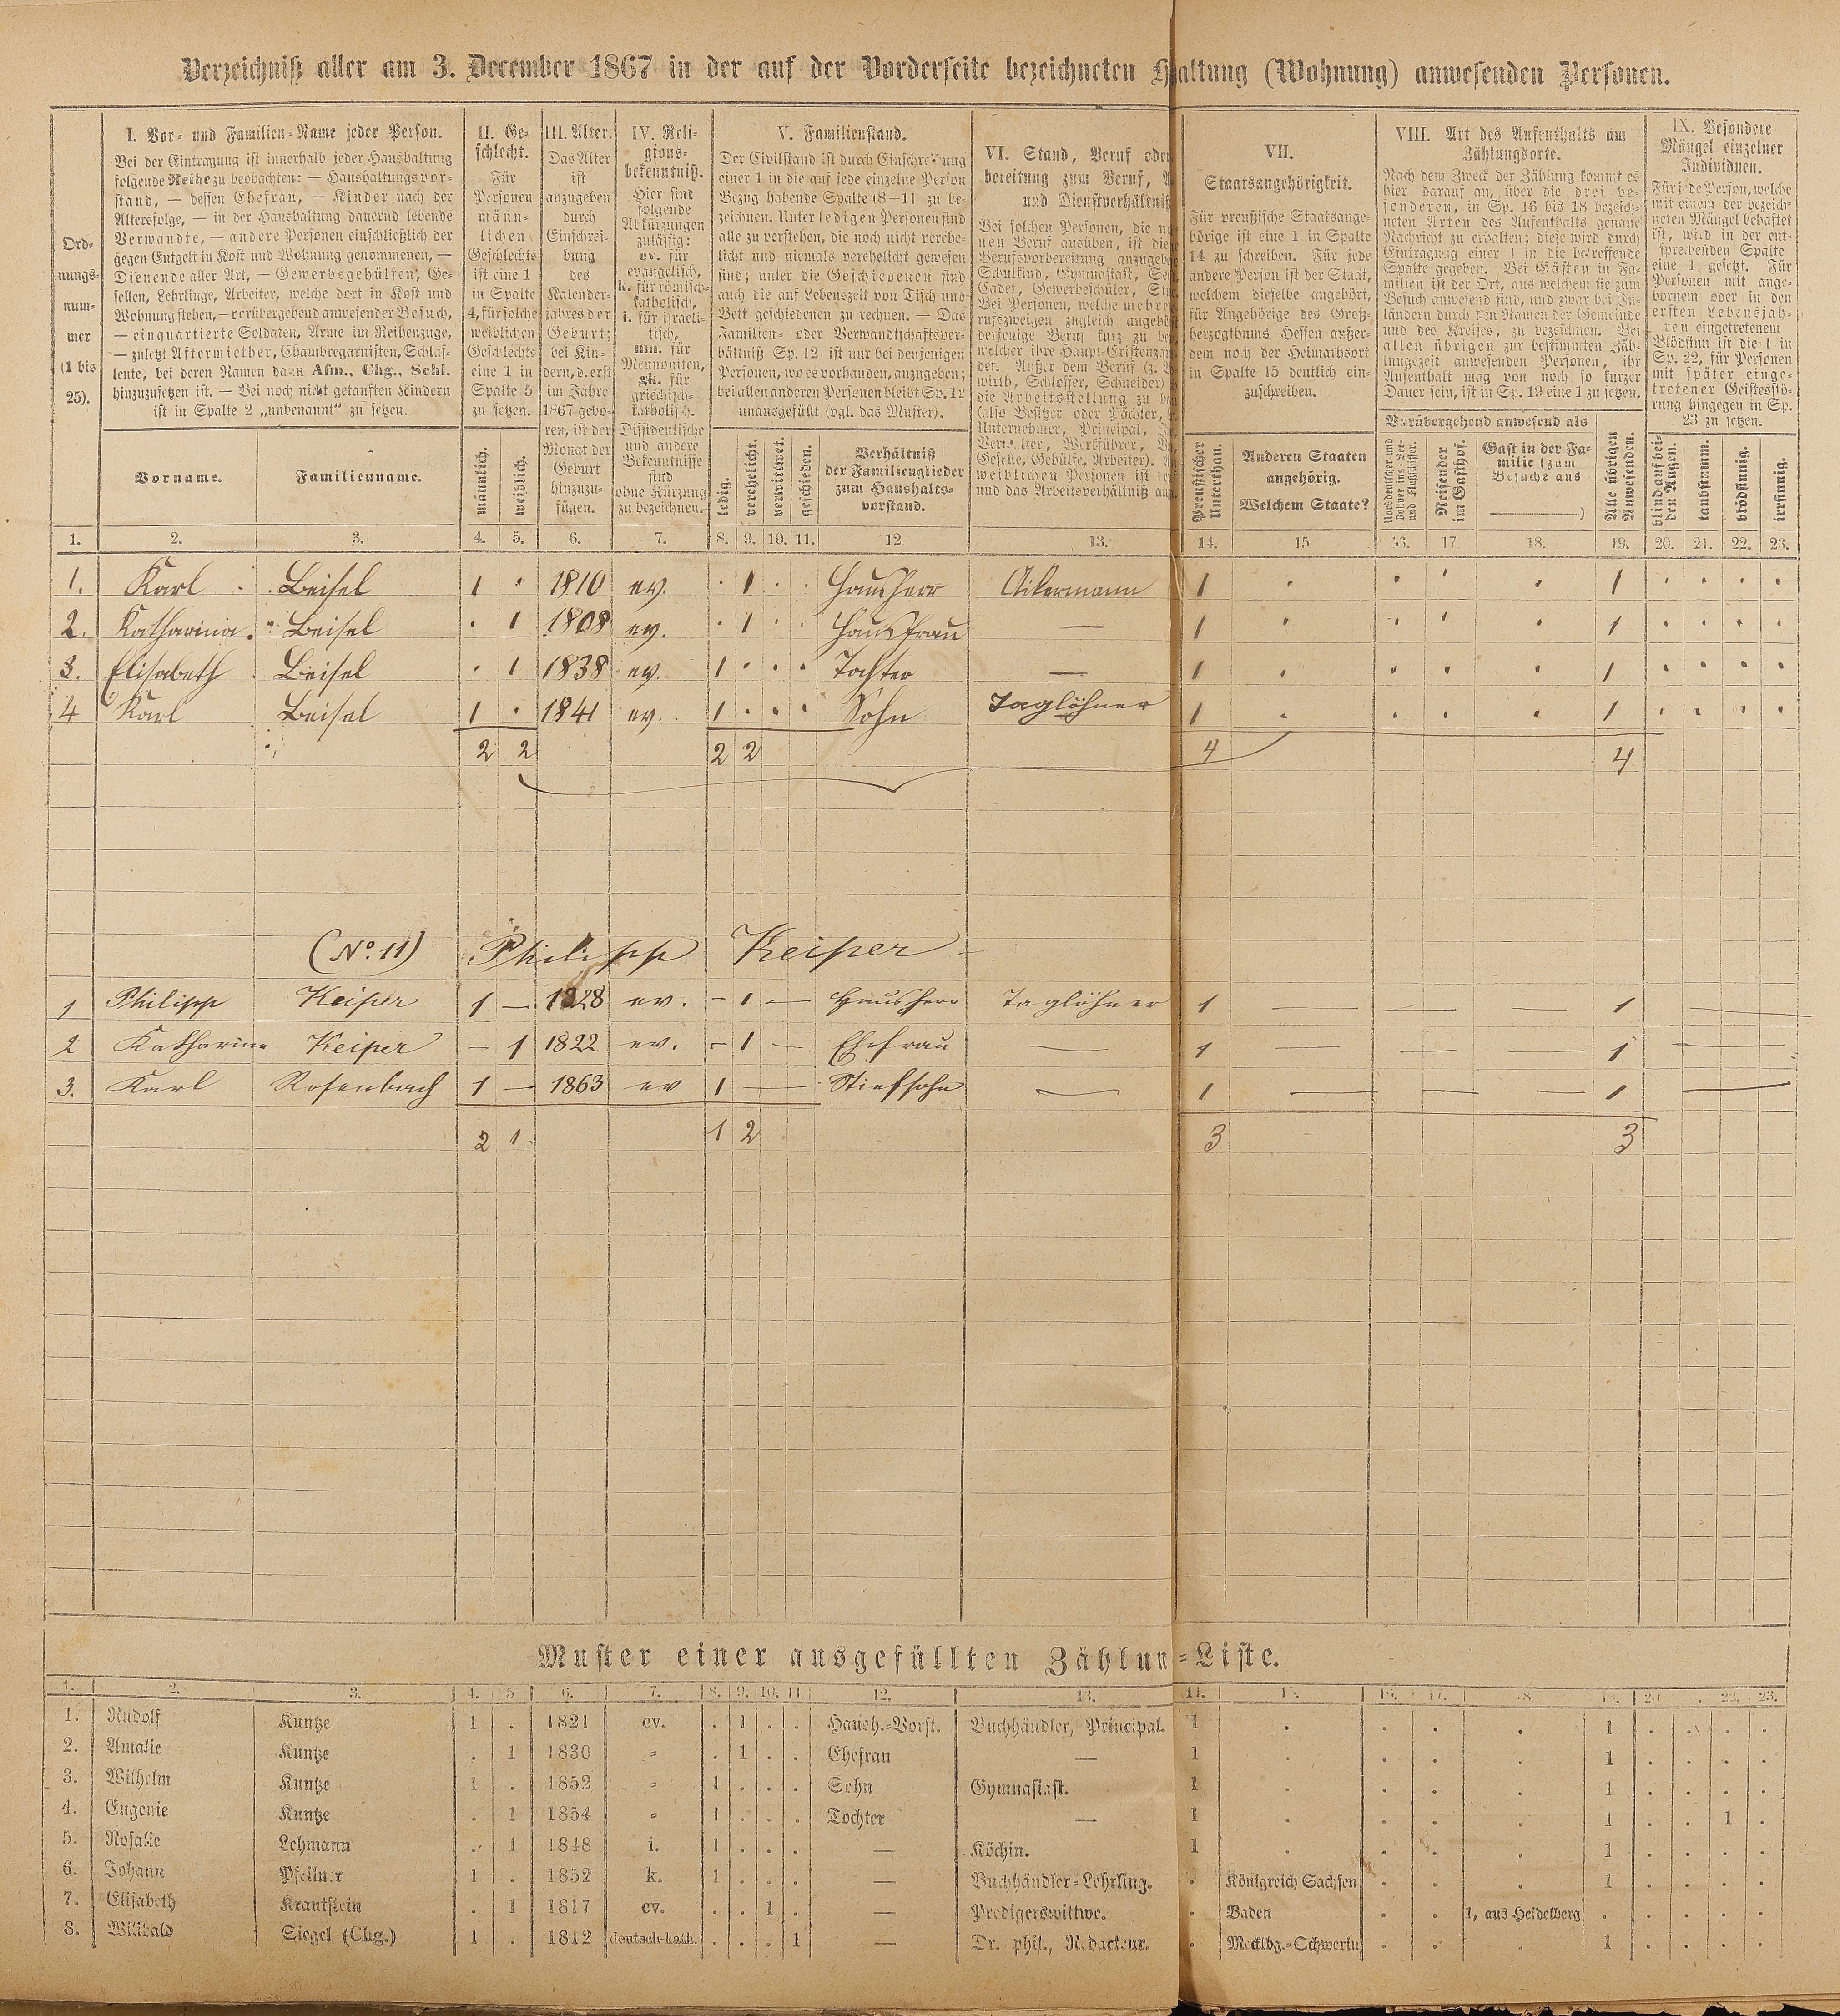 Verzeichniß aller am 3. December 1867 in der auf der Vorderseite bezeichneten H altung (Wohnung) anwesenden Personen.
Ord-
nungs-
num-
mer
(1 bis
25).
I. Vor- und Familien-Name jeder Person.
Bei der Eintragung ist innerhalb jeder Haushaltung
folgende Reihe zu beobachten: — Haushaltungsvor-
stand, — dessen Ehefrau, — Kinder nach der
Altersfolge, — in der Haushaltung dauernd lebende
Verwandte, — andere Personen einschließlich der
gegen Entgelt in Kost und Wohnung genommenen, —
Dienende aller Art, — Gewerbsgehülfen, Ge-
sellen, Lehrlinge, Arbeiter, welche dort in Kost und
Wohnung stehen, — vorübergehend anwesender Besuch,
— einquartierte Soldaten, Arme im Reihenzuge,
— zuletzt Aftermiether, Chambregarnisten, Schlaf-
leute, bei deren Namen dann Afm., Chg., Schl.
hinzuzusetzen ist. — Bei noch nicht getauften Kindern
ist in Spalte 2 „unbenannt" zu setzen.
Vorname.
Familienname.
II. Ge-
schlecht.
Für
Personen
männ-
lichen
Geschlechts
ist eine 1
in Spalte
4, für solche
weiblichen
Geschlechts
eine 1 in
Spalte 5
zu setzen.
männlich.
weiblich.
III. Alter.
Das Alter
ist
anzugeben
durch
Einschrei-
bung
des
Kalender-
jahres der
Geburt;
bei Kin-
dern, d. erst
im Jahre
1867 gebo-
ren, ist der
Monat der
Geburt
hinzuzu-
fügen.
IV. Reli-
gions-
bekenntniß.
Hier sind
folgende
Abkürzungen
zulässig:
ev. für
evangelisch,
k. für römisch-
katholisch,
i. für israeli-
tisch,
mn. für
Mennoniten,
gk. für
griechisch-
katholisch.
Dissidentische
und andere
Bekenntnisse
sind
ohne Kürzung
zu bezeichnen.
V. Familienstand.
Der Civilstand ist durch Einschreibung
einer 1 in die auf jede einzelne Person
Bezug habende Spalte (8—11) zu be-
zeichnen. Unter ledigen Personen sind
alle zu verstehen, die noch nicht verehe-
licht und niemals verehelicht gewesen
sind; unter die Geschiedenen sind
auch die auf Lebenszeit von Tisch und
Bett geschiedenen zu rechnen. — Das
Familien- oder Verwandtschaftsver-
hältniß Sp. 12 ist nur bei denjenigen
Personen, wo es vorhanden, anzugeben;
bei allen anderen Personen bleibt Sp. 12
unausgefüllt (vgl. das Muster).
ledig.
verehelicht.
verwittwet.
geschieden.
Verhältniß
der Familienglieder
zum Haushalts-
vorstand.
VI. Stand, Beruf oder
bereitung zum Beruf,
und Dienstverhältniß
Bei solchen Personen, die
nen Beruf ausüben, ist
Berufsvorbereitung
Schulkind, Gymnasiast,
Cadet, Gewerbeschüler,
Bei Personen, welche
rufszweigen zugleich
derjenige Beruf kurz zu
welcher ihre
det. Außer dem Beruf (z.
wirth, Schlosser, Schneider)
die Arbeitsstellung zu
(also Besitzer oder Pächter,
Unternehmer, Principal,
Verwalter, Werkführer,
Geselle, Gehülfe, Arbeiter).
weiblichen Personen ist
und das Arbeitsverhältniß
VII.
Staatsangehörigkeit.
Für preußische Staatsange-
hörige ist eine 1 in Spalte
14 zu schreiben. Für jede
andere Person ist der Staat,
welchem dieselbe angehört,
für Angehörige des Groß-
herzogthums Hessen außer-
dem noch der Heimathsort
in Spalte 15 deutlich ein-
zuschreiben.
Preußischer Unterthan.
Anderen Staaten
angehörig.
Welchem Staate?
VIII. Art des Aufenthalts am
Zählungsorte.
Nach dem Zweck der Zählung kommt es
hier darauf an, über die drei be-
sonderen, in Sp. 16 bis 18 bezeich-
neten Arten des Aufenthalts genaue
Nachricht zu erhalten; diese wird durch
Eintragung einer 1 in die betreffende
Spalte gegeben. Bei Gästen in Fa-
milien ist der Ort, aus welchem sie zum
Besuch anwesend sind, und zwar bei In-
ländern durch den Namen der Gemeinde
und des Kreises, zu bezeichnen. Bei
allen übrigen zur bestimmten Zäh-
lungszeit anwesenden Personen, ihr
Aufenthalt mag von noch so kurzer
Dauer sein, ist in Sp. 19 eine 1 zu setzen.
Vorübergehend anwesend als
Norddeutscher und Zollver.ins-See- und Flußschiffer.
Reisender im Gasthof.
Gast in der Fa-
milie (zum
Besuche aus
)
Alle übrigen Anwesenden.
IX. Besondere
Mängel einzelner
Individuen.
Für jede Person, welche
mit einem der bezeich-
neten Mängel behaftet
ist, wird in der ent-
sprechenden Spalte
eine 1 gesetzt. Für
Personen mit ange-
bornem oder in den
ersten Lebensjah-
ren eingetretenem
Blödsinn ist die 1 in
Sp. 22, für Personen
mit später einge-
tretener Geistesstö-
rung hingegen in Sp.
23 zu setzen.
blind auf bei-den Augen.
taubstumm.
blödsinnig.
irrsinnig.
1. 2. 3. 4. 5. 6. 7. 8. 9. 10. 11. 12 13. 14. 15 16. 17 18. 19. 20. 21. 22. 23.
1. Karl Beisel 1 · 1810 ev. · 1 · · Hausherr Ackermann 1 · · · · 1 · · · ·
2. Katharina Beisel · 1 1808 ev. · 1 Hausfrau — 1 · · · · 1 · · · ·
3. Elisabeth Beisel · 1 1838 ev. 1 · · · Tochter — 1 · · · · 1 · · · ·
4 Karl Beisel 1 · 1841 ev. 1 · · · Sohn Taglöhner 1 · · · · 1 · · · ·
2 2 2 2 4 4
(No. 11) Philipp Keiper
1 Philipp Keiper 1 — 1828 ev. — 1 — Hausherr Taglöhner 1 — — — 1 —
2 Katharina Keiper — 1 1822 ev. — 1 — Ehefrau — 1 — — — 1 —
3. Karl Rosenbach 1 — 1863 ev 1 — Stiefsohn — 1 — — — 1 —
2 1. 1 2 3 3
Muster einer ausgefüllten Zählun =Liste.
1. 2. 3. 4. 5 6. 7. 8. 9. 10. 11 12. 13. 14. 15. 16. 17. 18. 19. 20. 22. 23.
1. Rudolf Kuntze 1 . 1821 ev. . 1 . . Haush.=Vorst. Buchhändler, Principal. 1 . . . . 1 . . . .
2. Amalie Kuntze . 1 1830 = . 1 . . Ehefrau — 1 . . . . 1 . . . .
3. Wilhelm Kuntze 1 . 1852 = 1 . . . Sohn Gymnasiast. 1 . . . . 1 . . . .
4. Eugenie Kuntze . 1 1854 = 1 . . . Tochter — 1 . . . . 1 . . 1 .
5. Rosalie Lehmann . 1 1848 i. 1 . . . — Köchin. 1 . . . . 1 . . . .
6. Johann Pfeilner 1 . 1852 k. 1 . . . — Buchhändler=Lehrling. . Königreich Sachsen . . . 1 . . . .
7. Elisabeth Krautstein . 1 1817 ev. . . 1 . — Predigerswittwe. . Baden . . 1, aus Heidelberg . . . . .
8. Wilibald Siegel (Chg.) 1 . 1812 deutsch-kath. . . . 1 — Dr. phil., Redacteur. . Mecklbg.=Schwerin . . . 1 . . . .